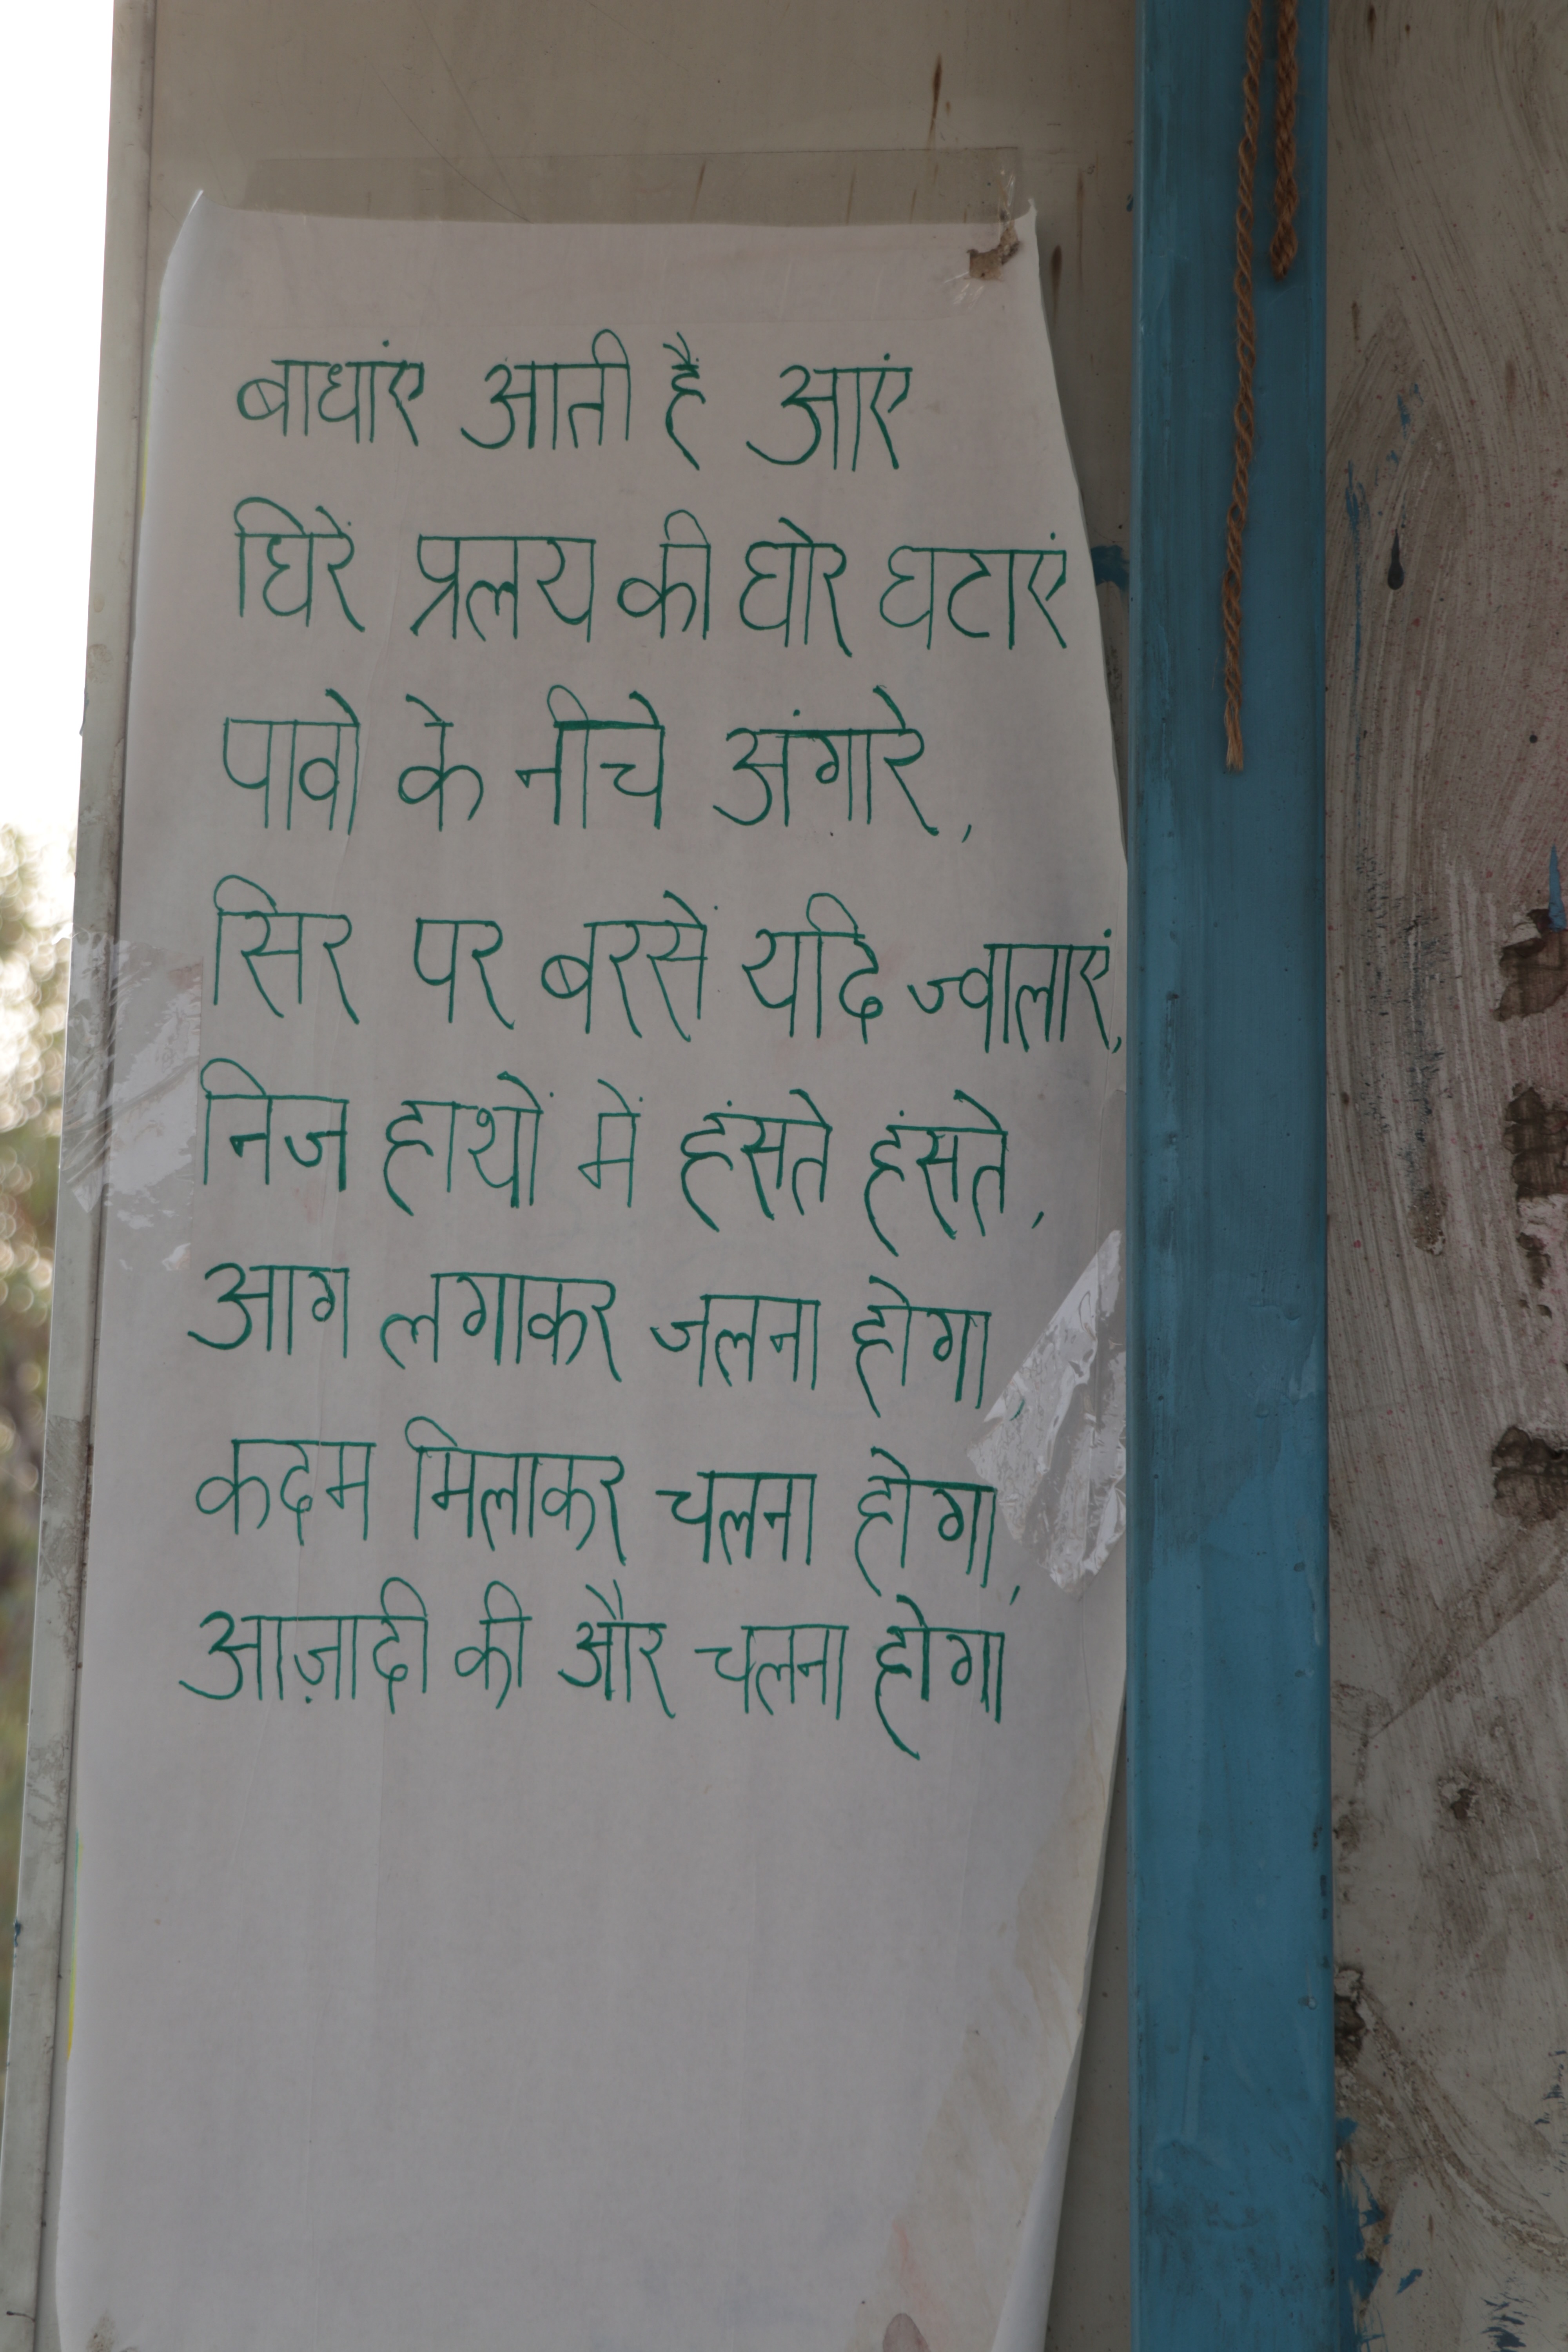 बाधाएं आती हैं आएं
घिरें प्रलय की घोर घटाएं
पावो के नीचे अंगारे,
सिर पर बरसें यदि ज्वालाएं,
निज हाथों में हंसते हंसते,
आग लगाकर जलना होगा,
कदम मिलाकर चलना होगा,
आज़ादी की और चलना होगा